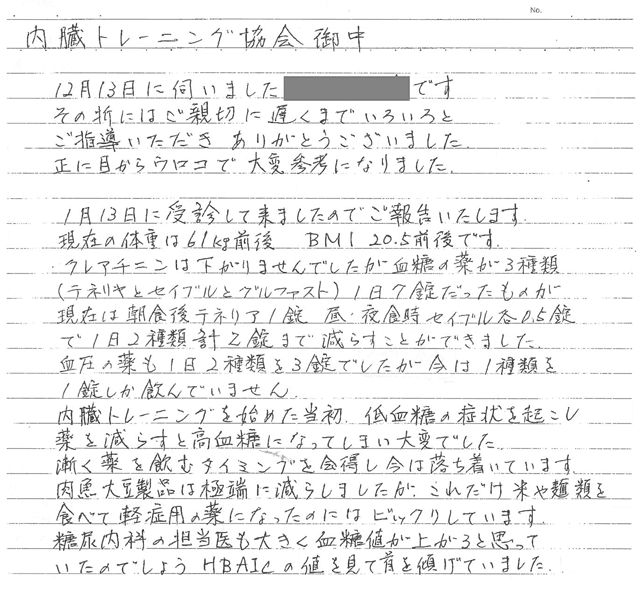 No.
内臓トレーニング協会御中
12月13日に伺いました です
その折にはご親切に遅くまでいろいろと
ご指導いただき ありがとうございました.
正に目からウロコで大変参考になりました.
1月13日に受診して来ましたのでご報告いたします.
現在の体重は61kg前後 BMI 20.5前後です.
クレアチニンは下がりませんでしたが血糖の薬が3種類
(テネリヤとセイブルとグルファスト) 1日7錠だったものが
現在は朝食後テネリア1錠 昼・夜食時セイブル各0.5錠
で1日2種類計2錠まで減らすことができました.
血圧の薬も1日2種類を3錠でしたが今は1種類を
1錠しか飲んでいません.
内臓トレーニングを始めた当初、低血糖の症状を起こし
薬を減らすと高血糖になってしまい大変でした.
漸く薬を飲むタイミングを会得し今は落ち着いています.
肉魚大豆製品は極端に減らしましたが、これだけ米や麺類を
食べて軽症用の薬になったのにはビックリしています.
糖尿内科の担当医も大きく血糖値が上がると思って
いたのでしょう HBA1Cの値を見て首を傾げていました.